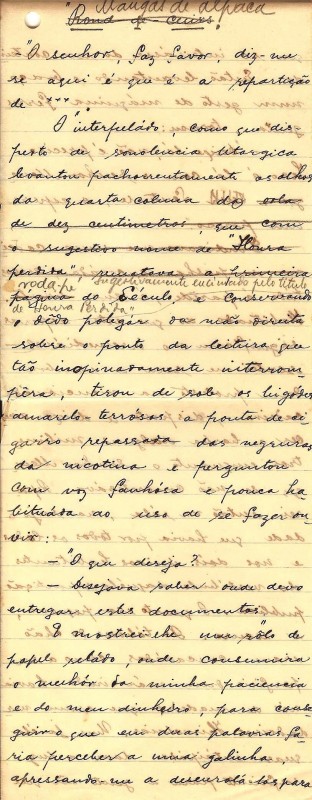 Mangas de Alpaca
"Ronda de cenas!"
- "O senhor, faz favor, diz-me
se aqui é que é a repartição
de ***?
O interpelado, como que dis-
perto de sonolencia liturgica
levantou pachorrentamente os olhos
da quarta coluna do
de dez centimetros, que com
o sugestivo nome de "Honra
perdida" rematava a primeira
roda-pé sugestivamente entitulado pelo titulo
pagina do Século, e conservando
de "Honra Perdida"
o dedo polegár da mão direita
sobre o ponto da leitura que
tão inopinadamente interrom-
pêra, tirou de sob os bigodes
amarelo-terrósos a ponta de ci-
garro repassada das negruras
da nicotina e perguntou
com voz fanhósa e pouca ha-
bituáda ao uso de se fazer ou-
vir:
- "O que deseja?
- Desejava saber onde devo
entregar estes documentos.
E mostrei-lhe um rôlo de
papel seládo, onde consumira
o melhór da minha paciencia
e do meu dinheiro, para conse-
guir o que em duas palavras fa-
ria perceber a uma galinha
apressando-me a desenrolá-los para